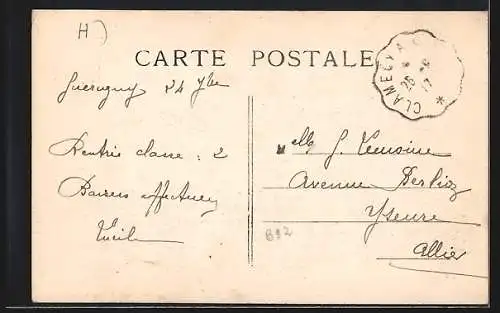 H)
CARTE POSTALE
CLAMECY A
25
17
Guerigny 24 7bre
Rentrée classe : 2
Baisers affectueux
Lucile
Mlle G.
Avenue Berlioz
Yseure
Allier
B92